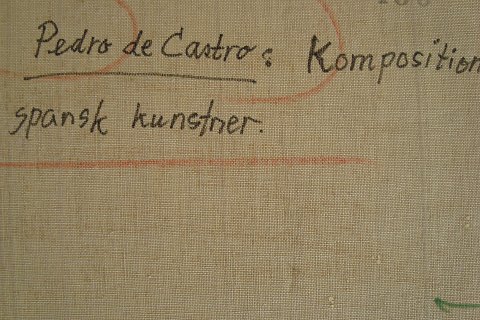 Pedro de Castro: Komposition
spansk kunstner.